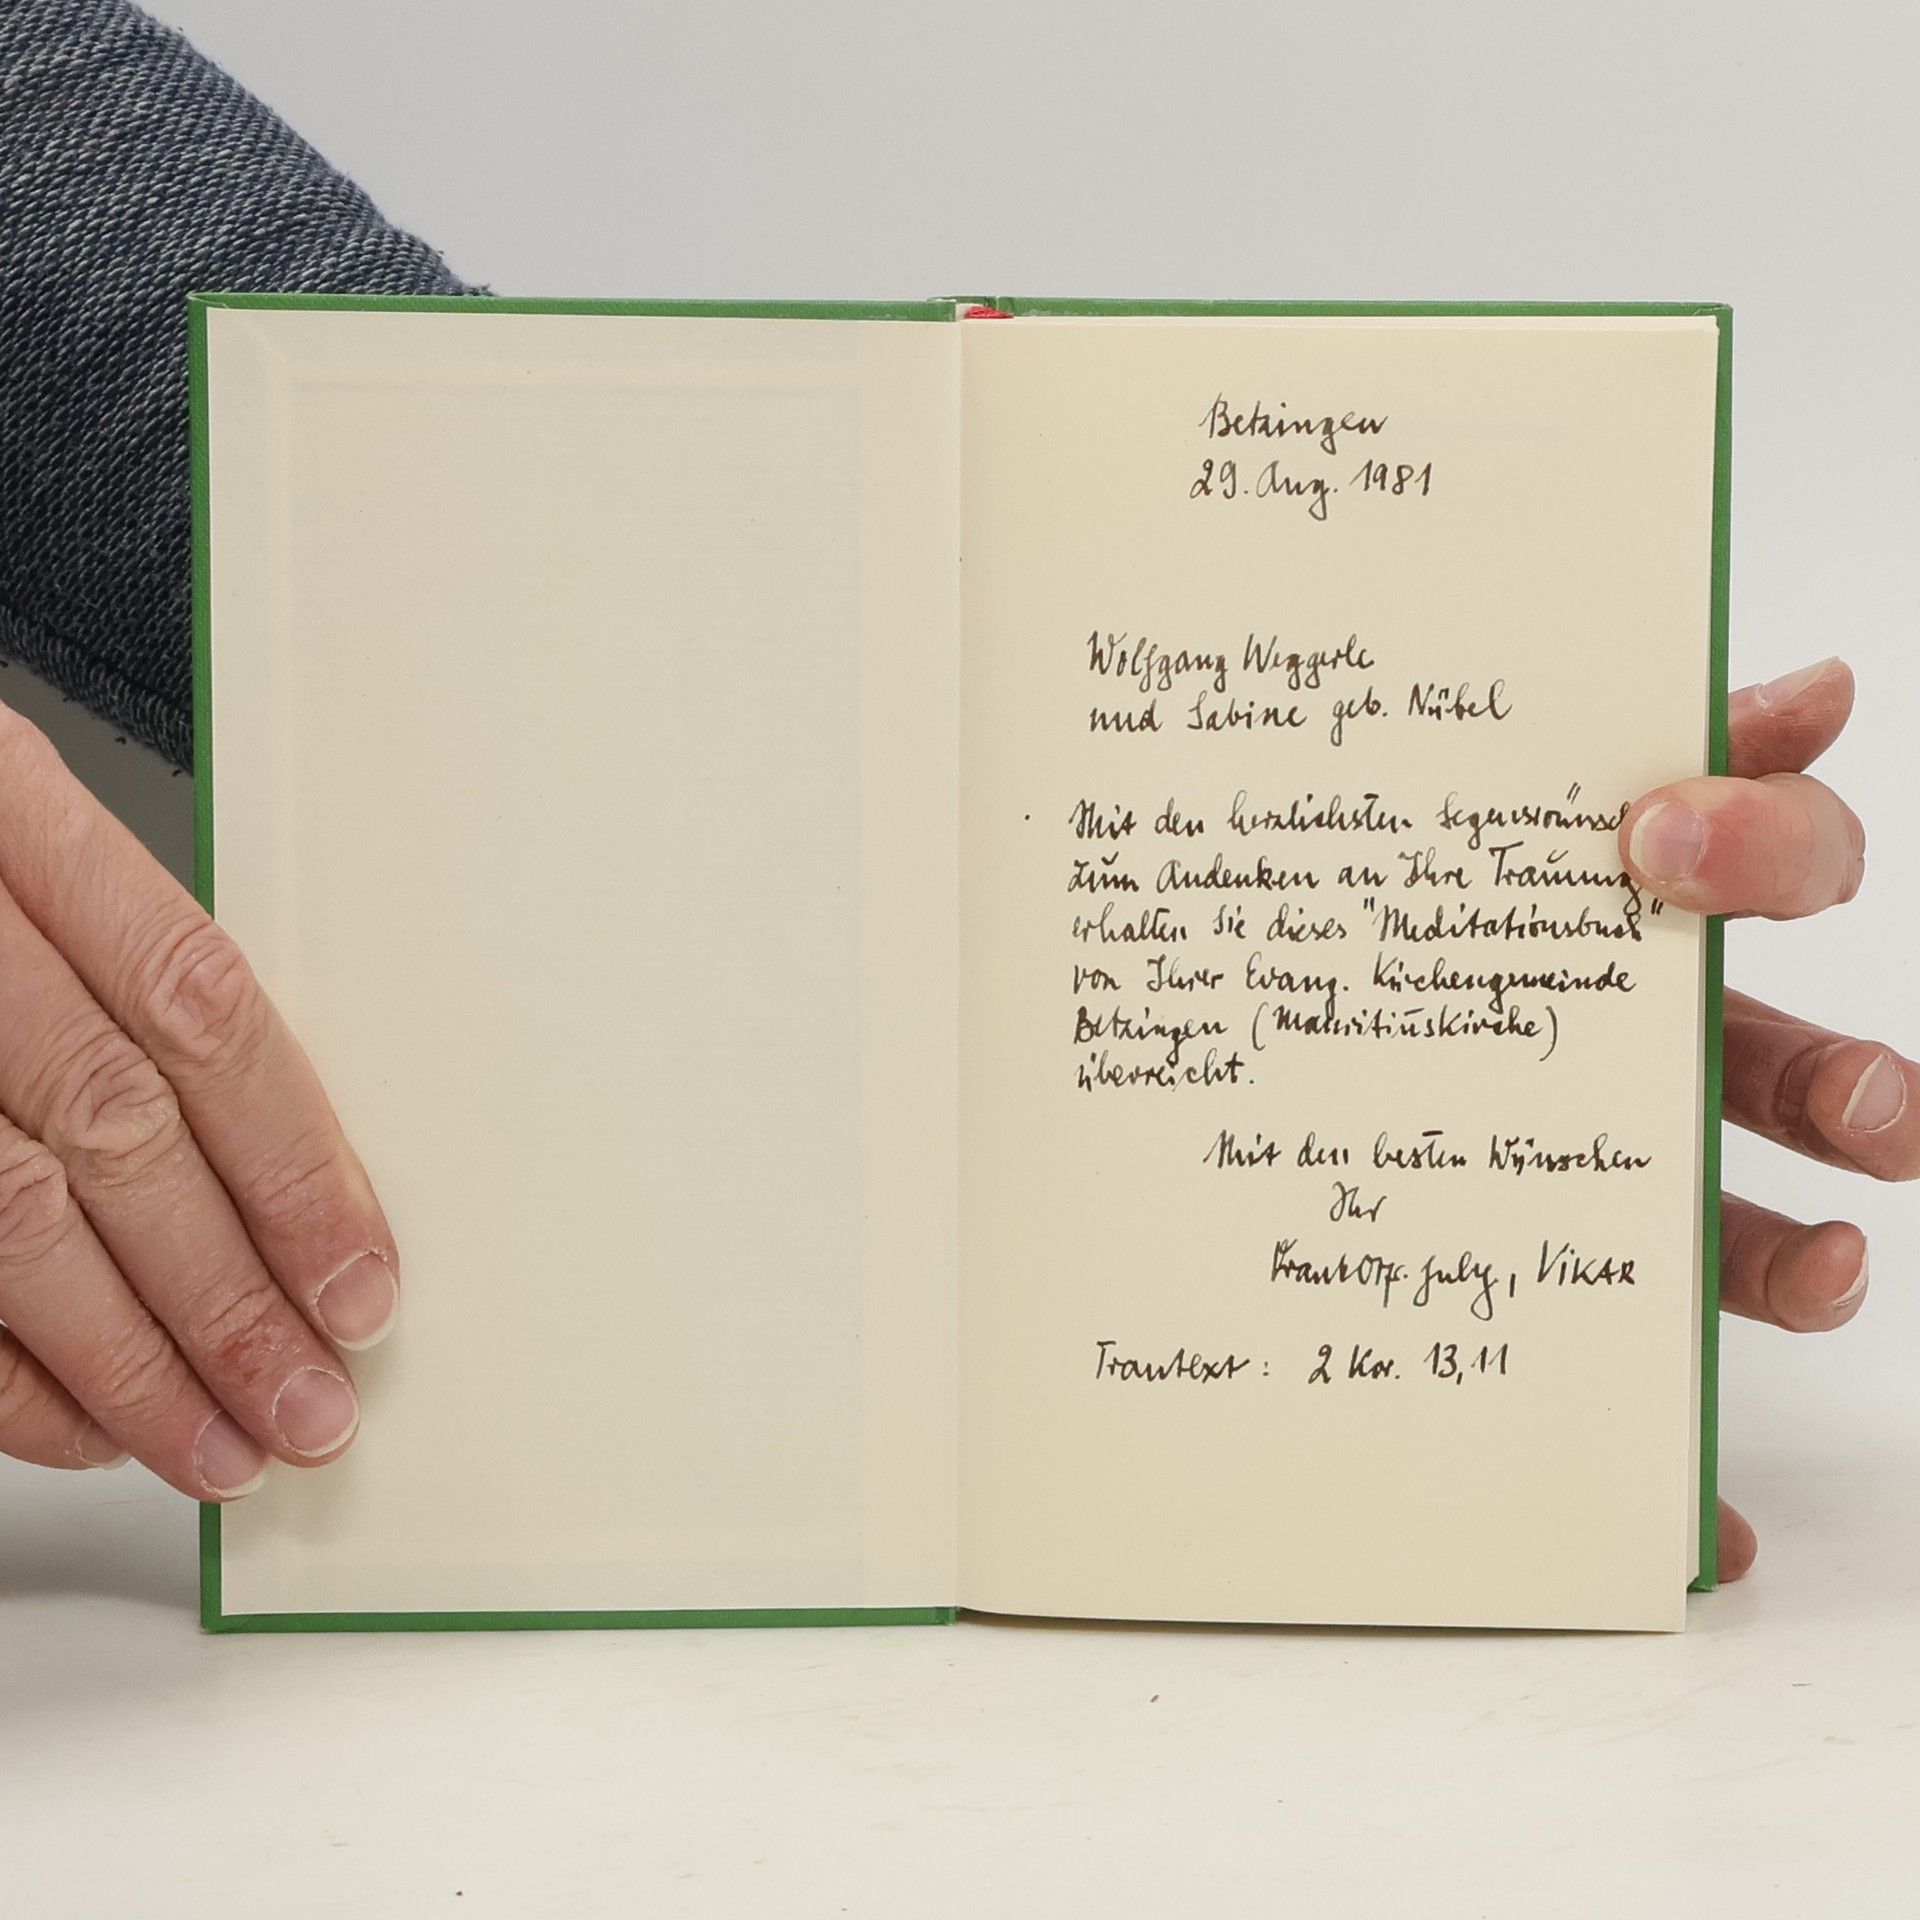 Betzingen
29. Aug. 1981
Wolfgang Weggerle
und Sabine geb. Nübel
Mit den herzlichsten Segenswünsch
zum Andenken an Ihre Trauung
erhalten Sie dieses "Meditationsbuch"
von Ihrer Evang. Kirchengemeinde
Betzingen (Mauritiuskirche)
überreicht.
Mit den besten Wünschen
Ihr
July, VIKAR
Trautext: 2 Kor. 13,11